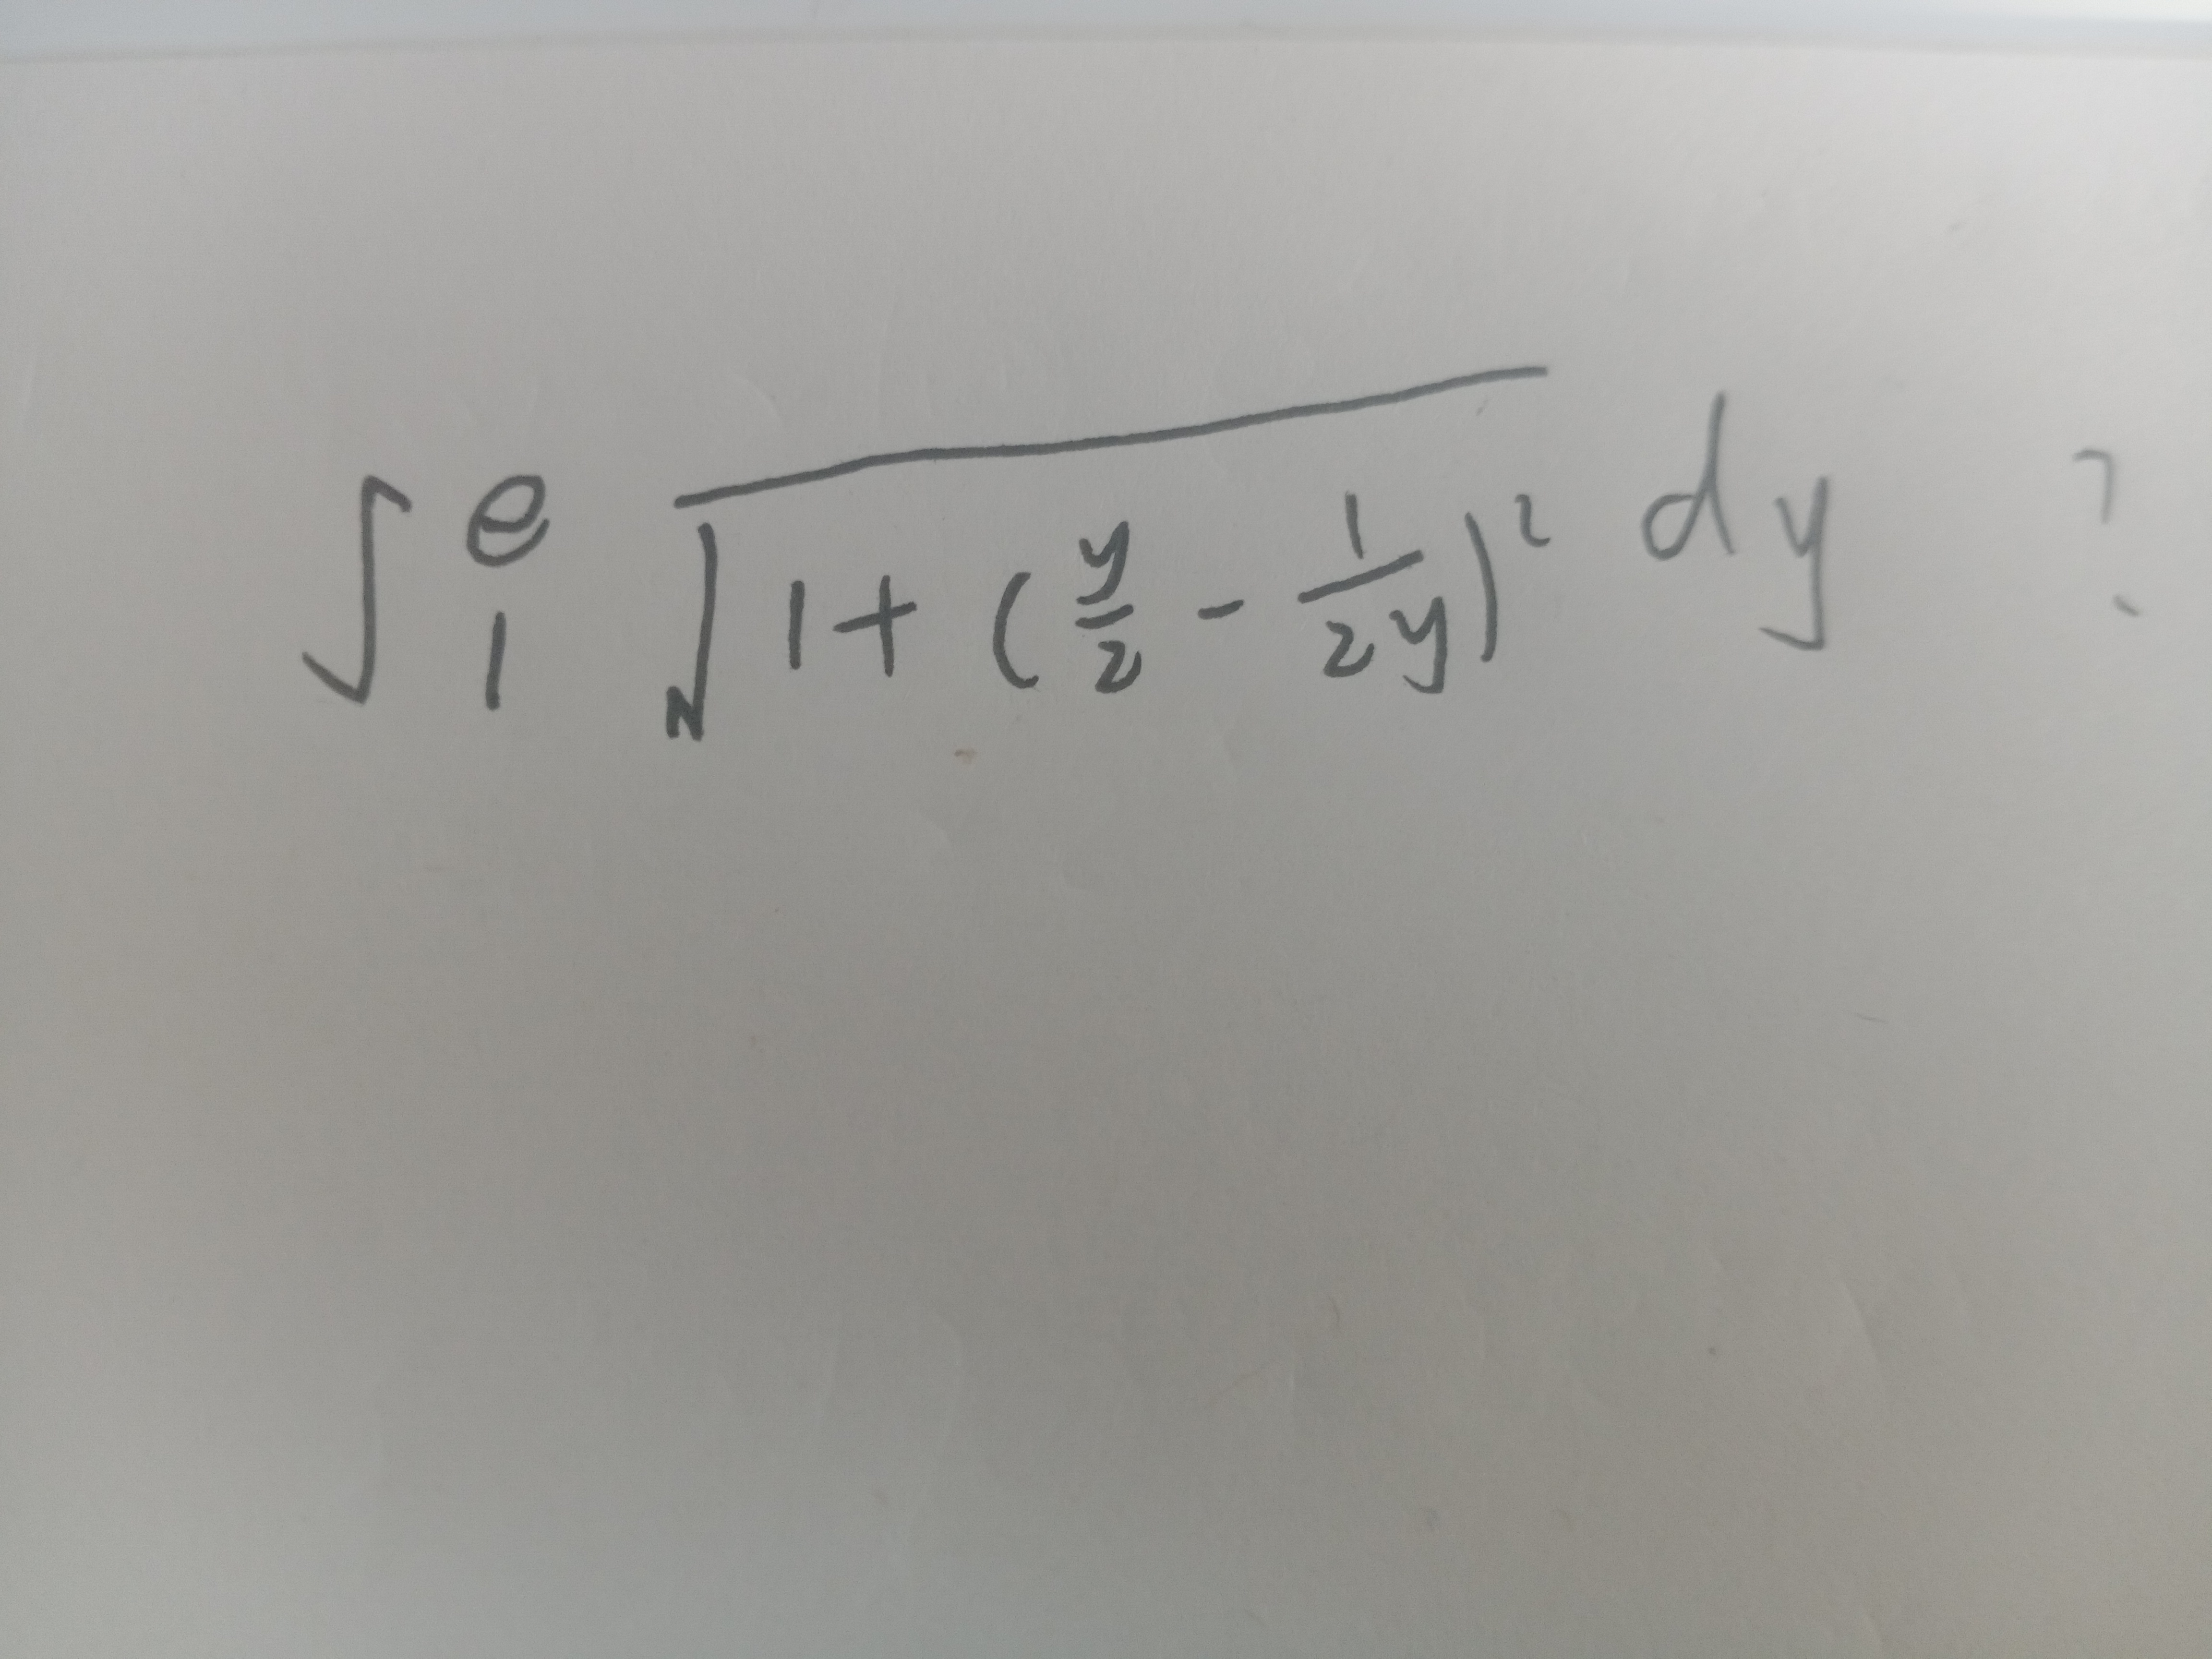 ∫₁ᵉ √(1+(y/2 - 1/2y)²) dy ?